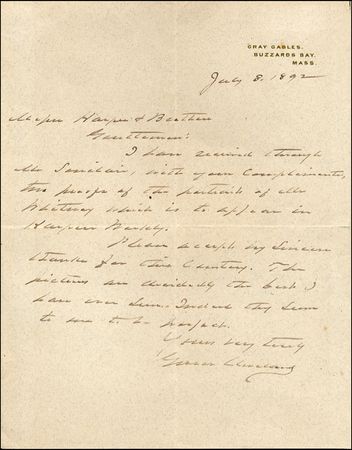 GRAY GABLES.
BUZZARDS BAY.
MASS.
July 8, 1892
Messrs Harper & Brothers
Gentlemen:
I have received through
Mr Sinclair, with your compliments,
two proofs of the portraits of Mr
Whitney which is to appear in
Harpers Weekly.
Please accept my sincere
thanks for this courtesy. The
pictures are decidedly the best I
have ever seen. Indeed they seem
to me to be perfect.
Yours very truly
Grover Cleveland